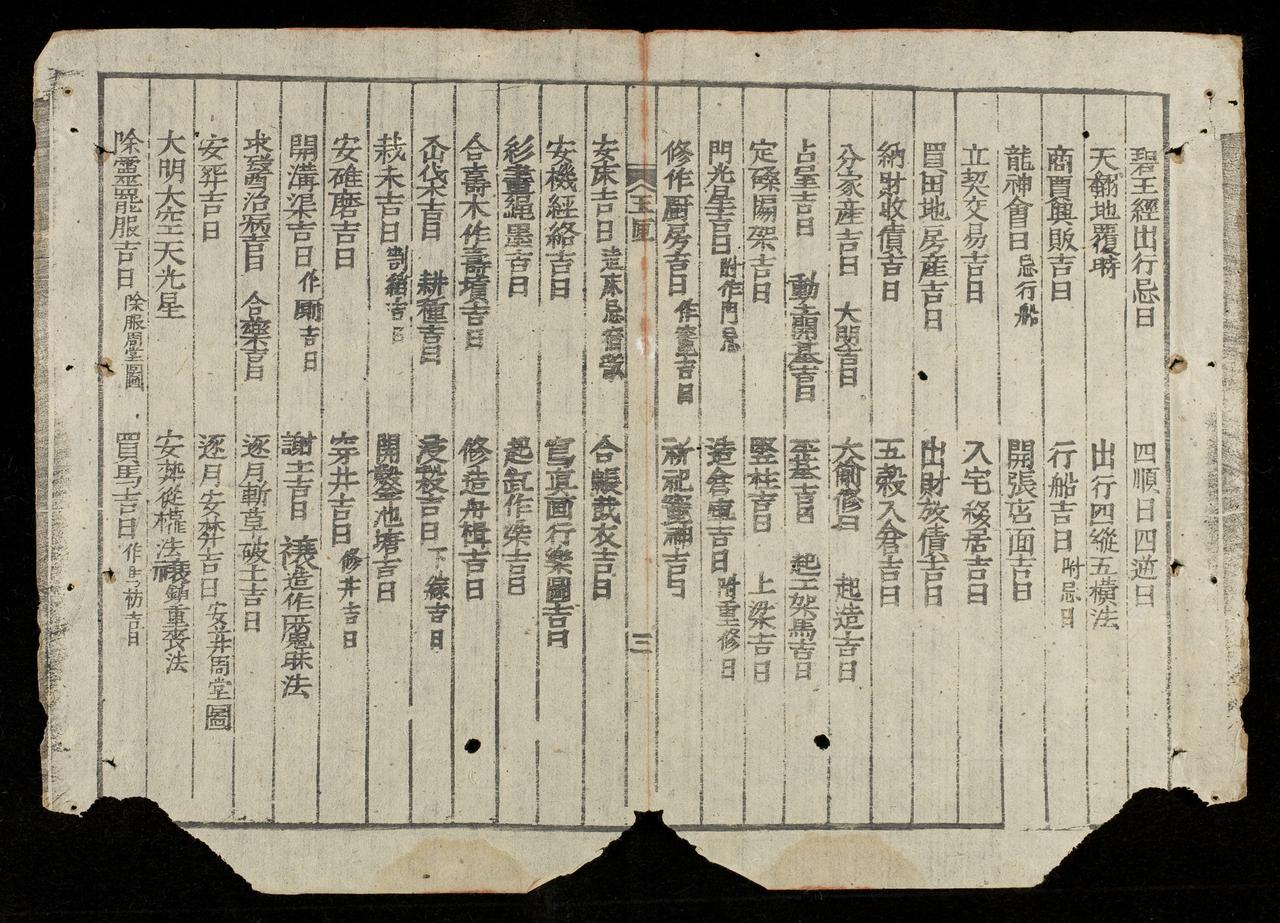 碧玉經出行忌日 四順日四逆日
天翻地覆時 出行四縱五橫法
商賈興販吉日 行船吉日 附忌日
龍神會日 忌行船 開張店面吉日
立契交易吉日 入宅移居吉日
買田地房產吉日 出財放債吉日
納財收債吉日 五穀入倉吉日
分家產吉日 大明吉日 大偷修日 起造吉日
占室吉日 動土開基吉日 平基吉日 起工架馬吉日
定磉搧架吉日 竪柱吉日 上梁吉日
門光星吉日 附作門忌 造倉庫吉日 附重修日
修作厨房吉日 作竈吉日 祈祀竈神吉日
玉匣 三
安床吉日 造床忌宿 合帳裁衣吉日
安機經絡吉日 寫真画行樂圖吉日
彩畫繩墨吉日 起缸作染吉日
合壽木作壽墳吉日 修造舟楫吉日
斫伐木吉日 耕種吉日 浸穀吉日 下秧吉日
栽禾吉日 割稻吉日 開鑿池塘吉日
安碓磨吉日 穿井吉日 修井吉日
開溝渠吉日 作廁吉日 謝土吉日 禳造作魘昧法
求醫治病吉日 合藥吉日 逐月斬草破土吉日
安葬吉日 逐月安葬吉日 安葬周堂圖
大明大空天光星 安葬從權法禳鎮重喪法
除靈罷服吉日 除服周堂圖 買馬吉日 作馬枋吉日